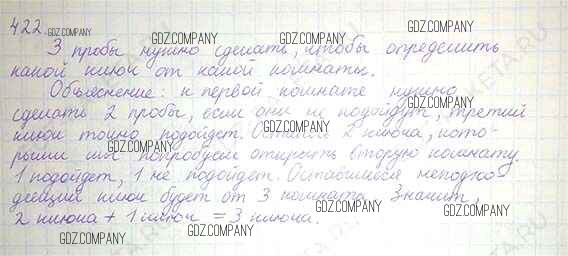 422.
3 пробы нужно сделать, чтобы определить
какой ключ от какой комнаты.
Объяснение: к первой комнате нужно
сделать 2 пробы, если они не подойдут, третий
ключ точно подойдет. Осталось 2 ключа, кото-
рыми мы попробуем открыть вторую комнату.
1 подойдет, 1 не подойдет. Оставшийся неподхо-
дящий ключ будет от 3 комнаты. Значит,
2 ключа + 1 ключ = 3 ключа.
GDZ.COMPANY
GDZ.COMPANY
GDZ.COMPANY
GDZ.COMPANY
GDZ.COMPANY
GDZ.COMPANY
GDZ.COMPANY
GDZ.COMPANY
GDZ.COMPANY
GDZ.COMPANY